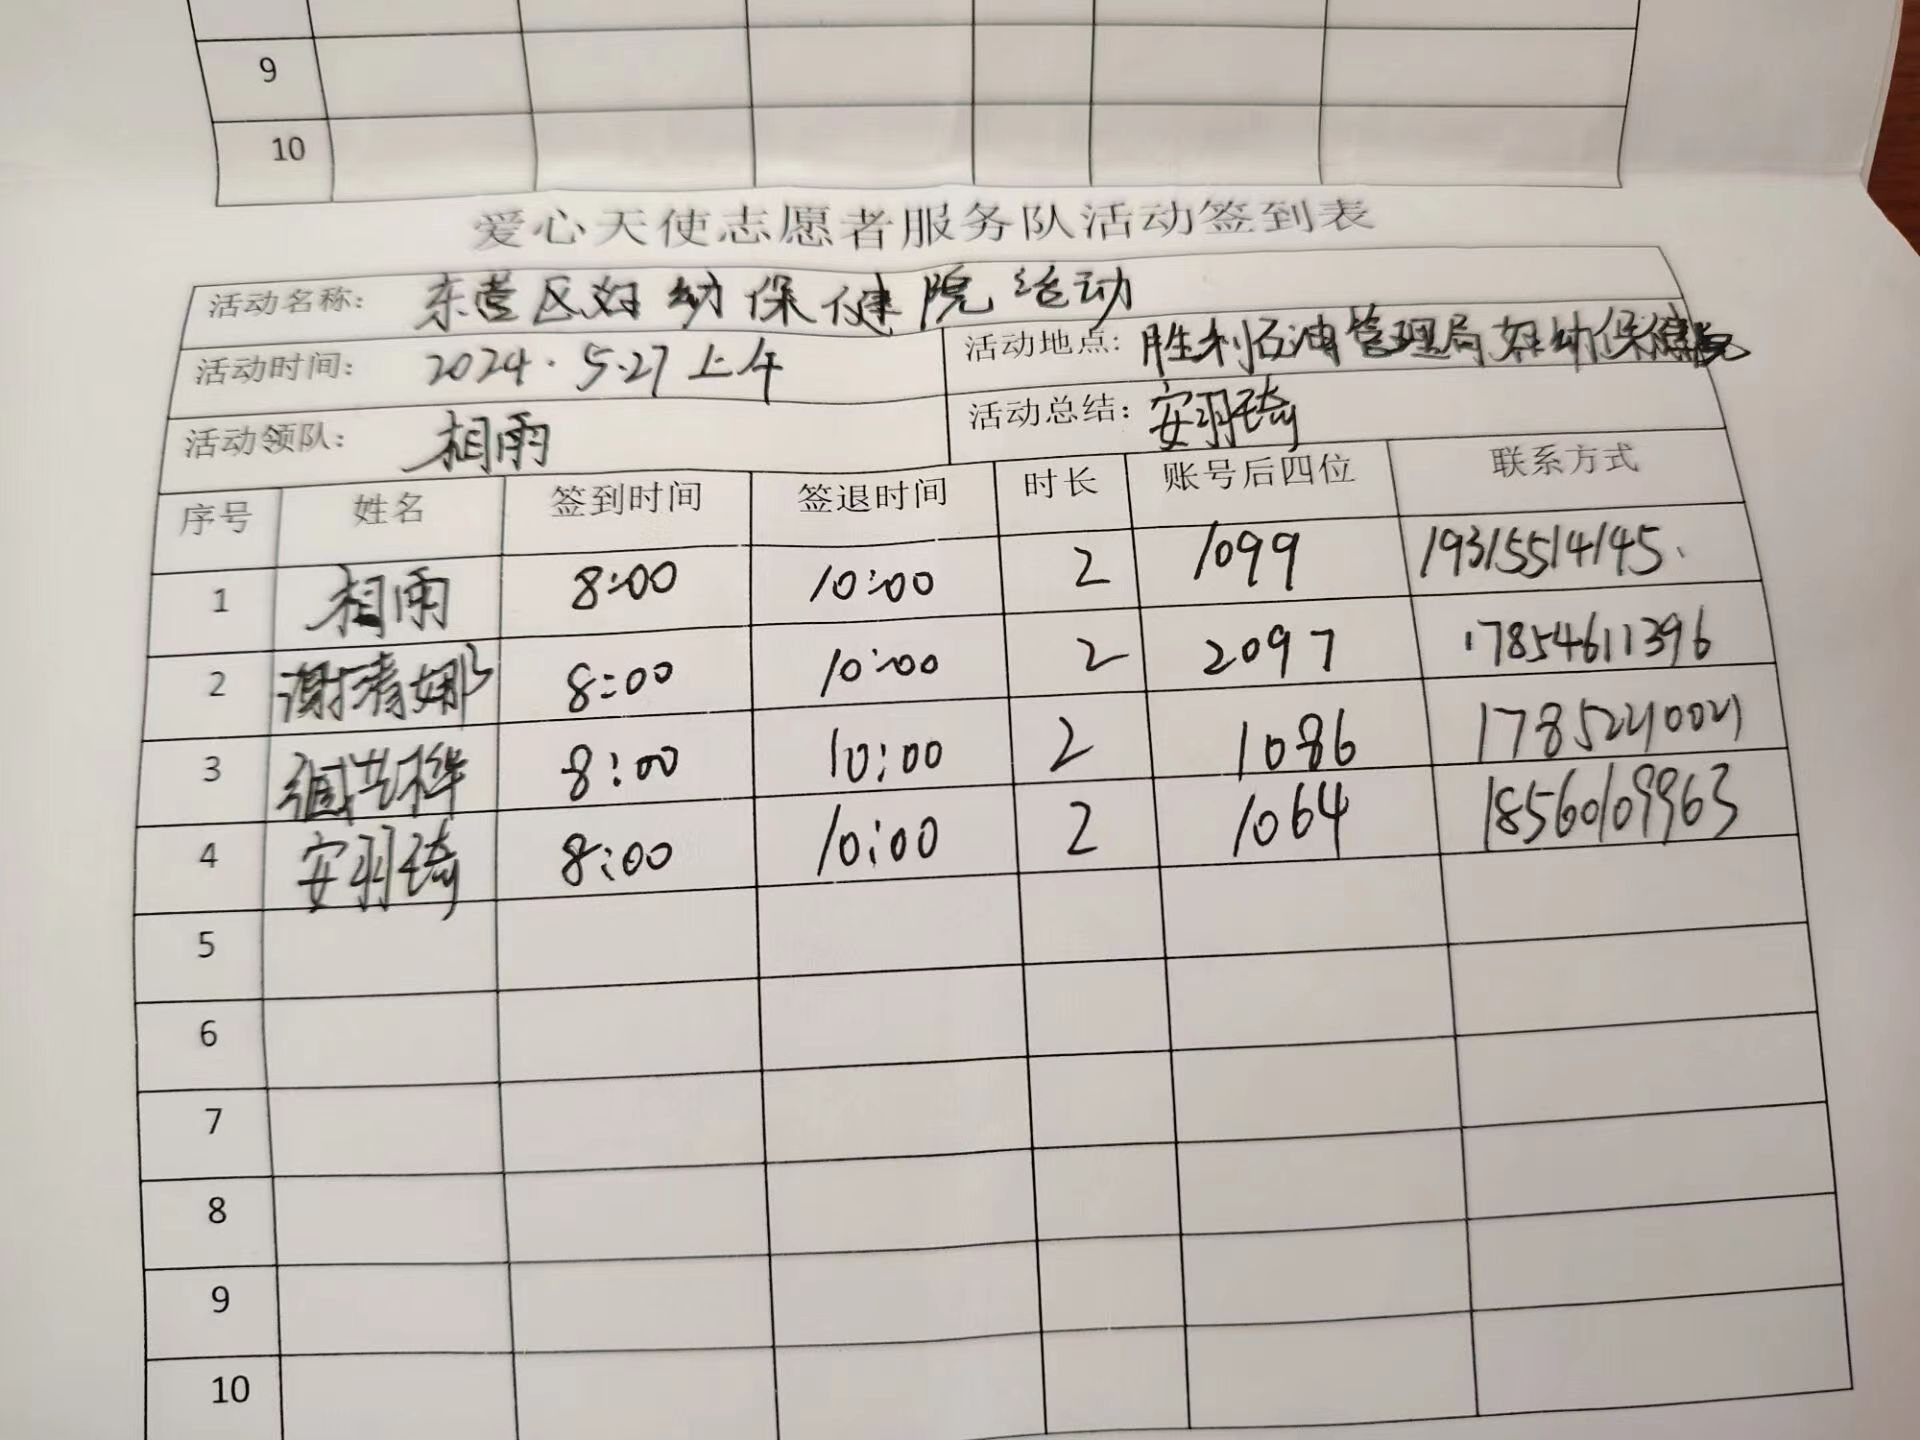 9
10
爱心天使志愿者服务队活动签到表
活动名称: 东营区妇幼保健院活动
活动时间: 2024.5.27上午 活动地点: 胜利石油管理局妇幼保健院
活动领队: 相雨 活动总结: 安羽琦
序号 姓名 签到时间 签退时间 时长 账号后四位 联系方式
1 相雨 8:00 10:00 2 1099 19315514145
2 谢清娜 8:00 10:00 2 2097 17854611396
3 8:00 10:00 2 1086
4 安羽琦 8:00 10:00 2 1064 18560109963
5
6
7
8
9
10